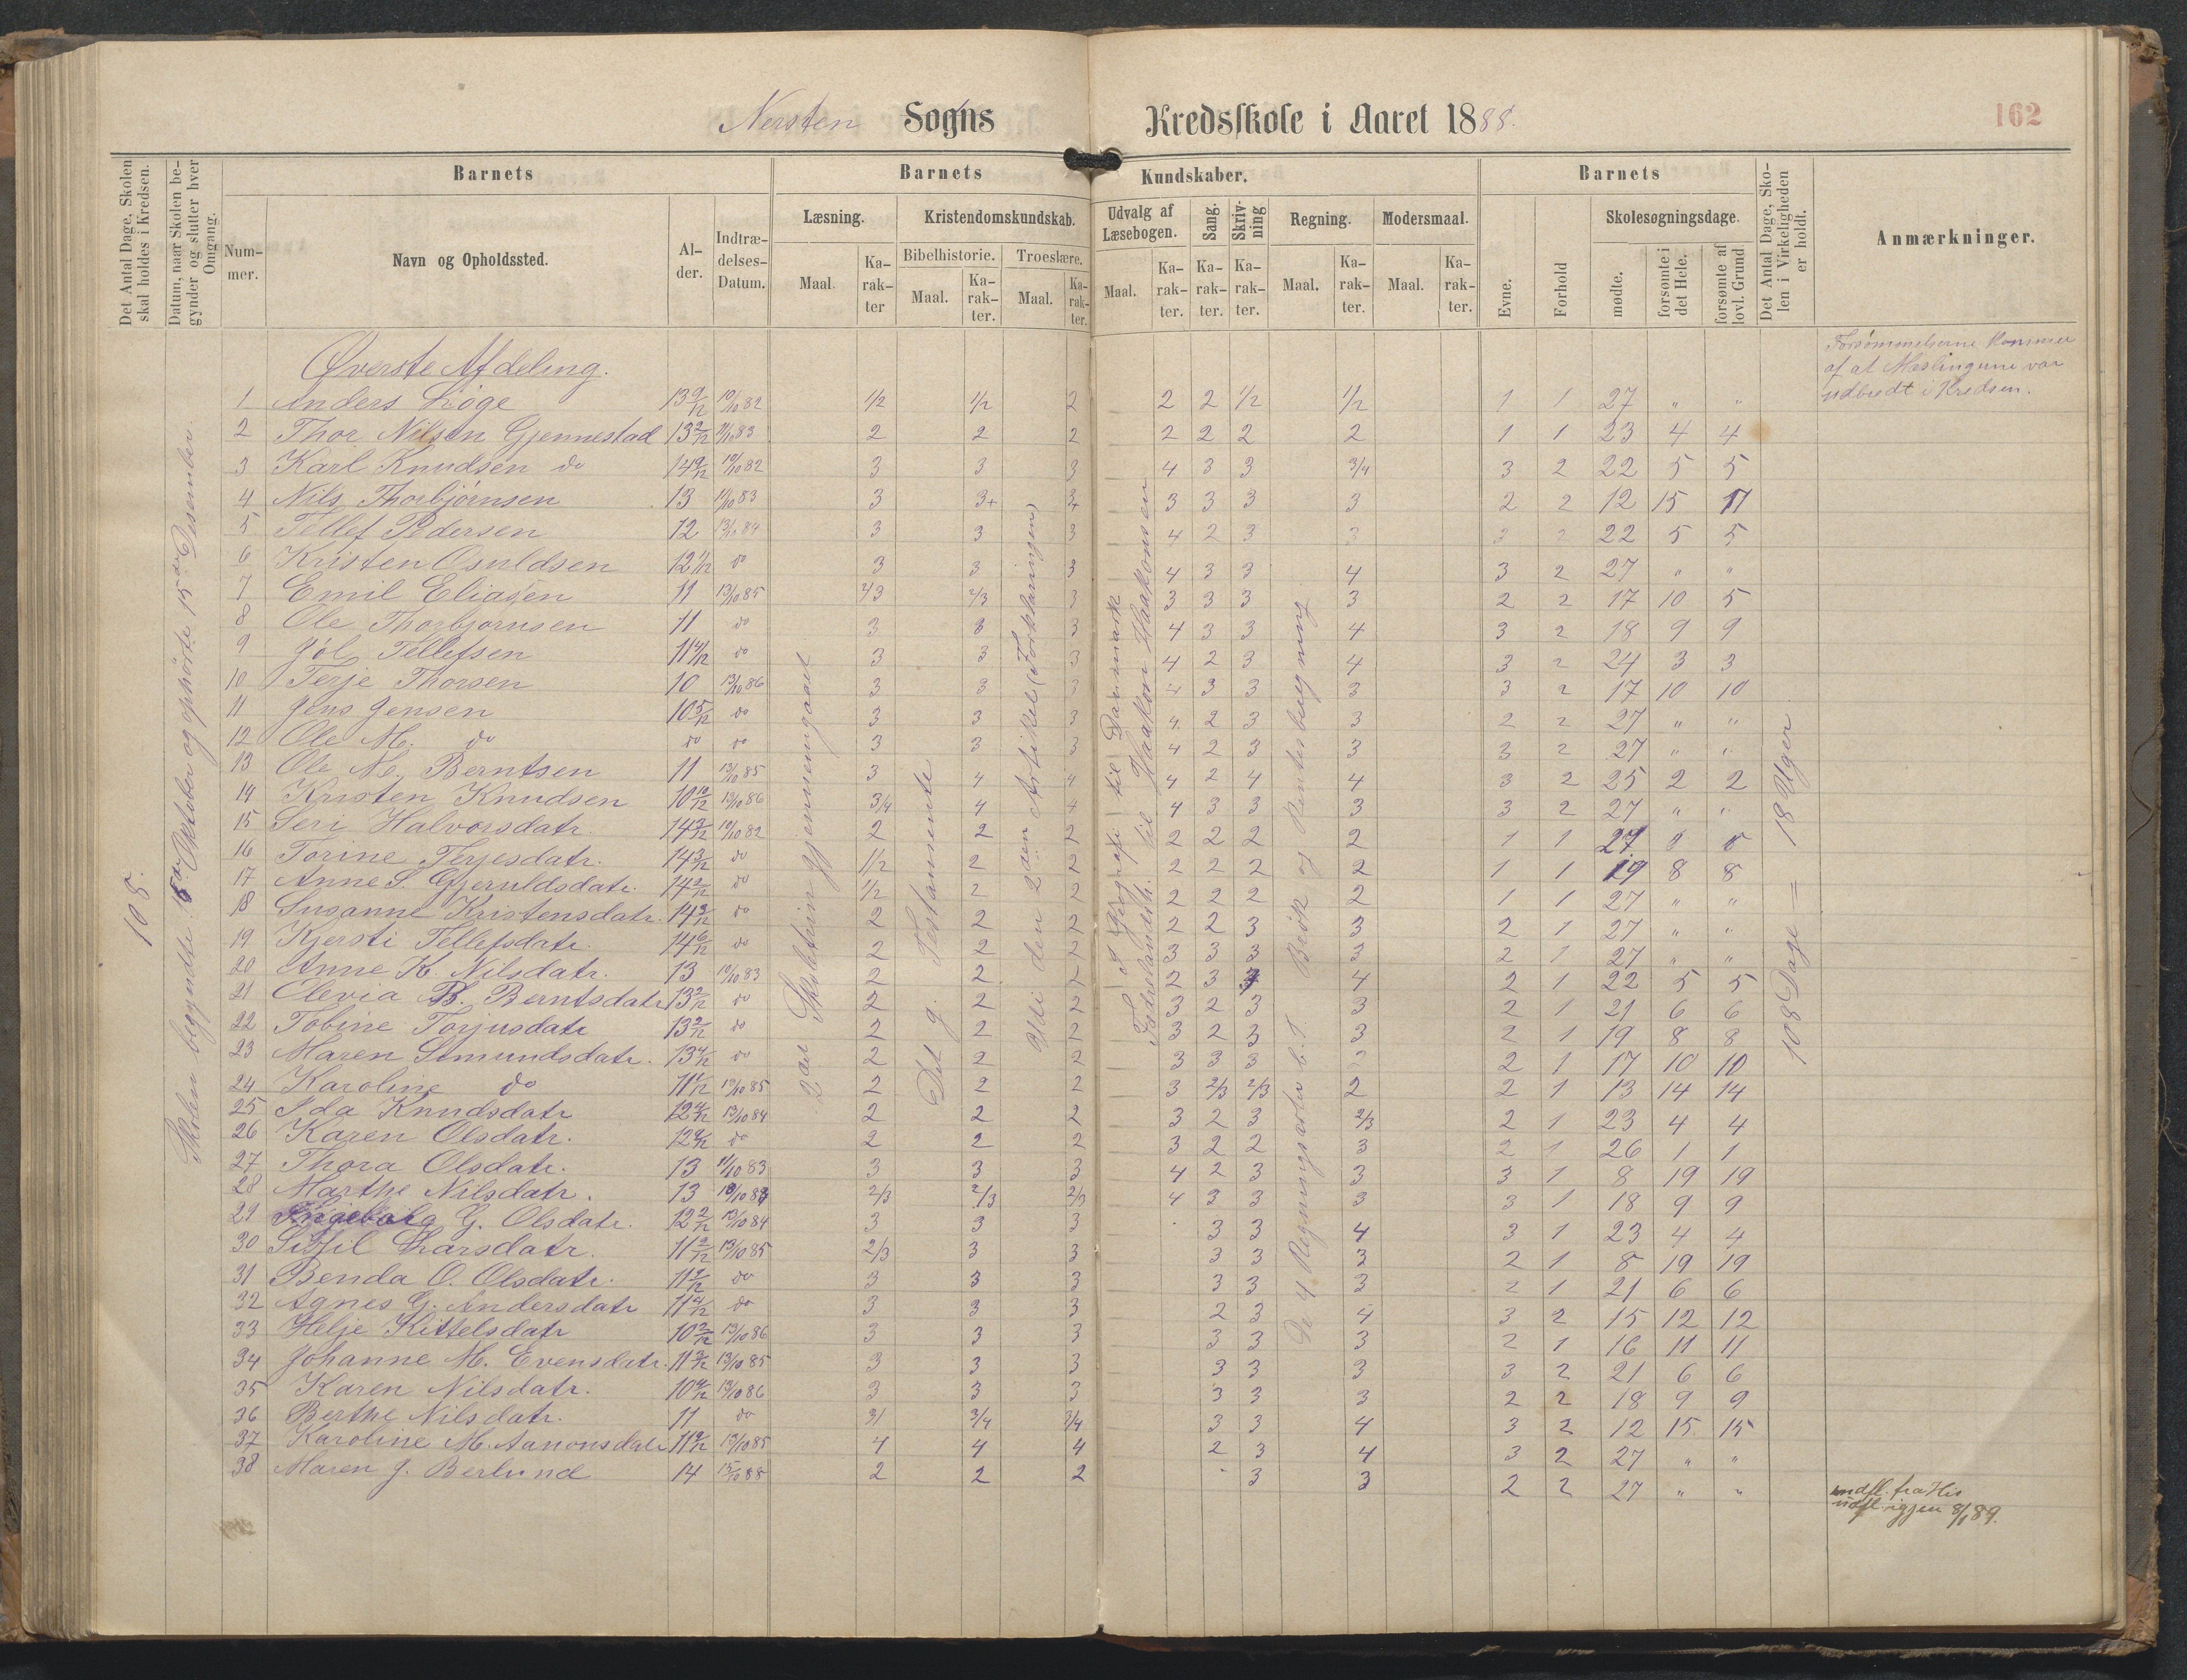 Nersten Sogns Kredsskole i Aaret 1888.
162
Det Antal Dage, Skolen skal holdes i Kredsen.
Datum, naar Skolen begynder og slutter hver Omgang.
Barnets
Barnets
Kundskaber.
Barnets
Det Antal Dage, Skolen i Virkeligheden er holdt.
Anmærkninger.
Nummer.
Navn og Opholdssted.
Alder.
Indtrædelses-Datum.
Læsning.
Kristendomskundskab.
Udvalg af Læsebogen.
Sang.
Skrivning
Regning.
Modersmaal.
Evne.
Forhold
Skolesøgningsdage.
Bibelhistorie.
Troeslære.
Maal.
Karakter
Maal.
Karakter.
Maal.
Karakter.
Maal.
Karakter.
Karakter.
Karakter.
Maal.
Karakter.
Maal.
Karakter.
mødte.
forsømte i det Hele.
forsømte af lovl. Grund
108.
Skolen begyndte Oktober og ophørte 15de Desember.
2det Skoletrin gjennemgaaet
Det g. Testamente
Til den 2den Artikel (Forklaringen)
I Geografi til Danmark
Fædrelandsh. til Haakon Haakonsen
De 4 Regningsarter b. T. Brøk og Rentesberegning
108 Dage = 18 Uger.
Forsømmelserne kommer
af at Meslingerne var
udbredt i Kredsen.
Øverste Afdeling.
1 Anders Løge 13 9/12 10/10 82 1/2 1/2 2 2 2 1/2 1/2 1 1 27 " "
2 Thor Nilsen Gjennestad 13 2/12 11/10 83 2 2 2 2 2 2 2 1 1 23 4 4
3 Karl Knudsen do 14 9/12 10/10 82 3 3 3 4 3 3 3/4 3 2 22 5 5
4 Nils Thorbjørnsen 13 11/10 83 3 3+ 3 3 3 3 2 2 12 15
5 Tellef Pedersen 12 13/10 84 3 3 3 4 2 3 3 3 2 22 5 5
6 Kristen Osuldsen 12 1/12 do 3 3 3 4 3 3 4 3 2 27 " "
7 Emil Eliasen 11 13/10 85 2/3 2/3 3 3 3 3 3 2 2 17 10 5
8 Ole Thorbjørnsen 11 do 3 3 3 4 3 3 4 3 2 18 9 9
9 Jól Tellefsen 11 4/12 do 3 3 3 4 2 3 4 3 2 24 3 3
10 Terje Thorsen 10 13/10 86 3 3 3 4 3 3 3 3 2 17 10 10
11 Jens Jensen 10 5/12 do 3 3 3 4 2 3 3 2 2 27 " "
12 Ole M. do do do 3 3 3 4 2 3 3 3 2 27 " "
13 Ole N. Berntsen 11 13/10 85 3 4 4 4 2 4 4 3 2 25 2 2
14 Kristen Knudsen 10 10/12 13/10 86 3/4 4 4 4 3 3 3 3 2 27 " "
15 Seri Halvorsdatr. 14 2/12 10/10 82 2 2 2 2 2 2 2 1 1 27
16 Torine Terjesdatr. 14 3/12 do 1/2 2 2 2 2 2 2 1 1 19 8 8
17 Anne S. Gjeruldsdatr. 14 2/12 do 1/2 2 2 2 2 2 2 1 1 27 " "
18 Susanne Kristensdatr. 14 3/12 do 2 2 2 2 2 3 3 2 1 27 " "
19 Kjersti Tellefsdatr. 14 6/12 do 2 2 2 3 3 3 3 2 1 27 " "
20 Anne K. Nilsdatr. 13 10/10 83 2 2 2 2 3 4 2 1 22 5 5
21 Olevia B. Berntsdatr 13 2/12 do 2 2 2 3 2 3 3 2 1 21 6 6
22 Tobine Torjusdatr 13 2/12 do 2 2 2 3 2 3 3 2 1 19 8 8
23 Maren Simundsdatr. 13 4/12 do 2 2 2 3 3 3 2 2 1 17 10 10
24 Karoline do 11 1/12 13/10 85 2 2 2 3 2/3 2/3 2 2 1 13 14 14
25 Ida Knudsdatr 12 4/12 13/10 84 2 2 2 3 2 3 2/3 2 1 23 4 4
26 Karen Olsdatr. 12 do 2 2 2 3 2 2 3 2 1 26 1 1
27 Thora Olsdatr. 13 11/10 83 3 3 3 4 2 3 3 3 1 8 19 19
28 Marthe Nilsdatr. 13 2/3 2/3 2/3 4 3 3 3 3 1 18 9 9
29 Ingeborg G. Olsdatr. 12 2/12 13/10 84 3 3 3 3 3 4 3 1 23 4 4
30 Larsdatr. 11 2/12 13/10 85 2/3 3 3 3 3 3 2 1 8 19 19
31 Benda O. Olsdatr. 11 do 3 3 3 3 3 3 2 1 21 6 6
32 Agnes G. Andersdatr 11 4/12 do 3 3 3 2 3 4 3 2 15 12 12
33 Helje Kittelsdatr 10 2/12 13/10 86 3 3 3 3 3 3 2 1 16 11 11
34 Johanne M. Evensdatr. 11 2/12 13/10 85 3 3 3 3 3 3 3 2 21 6 6
35 Karen Nilsdatr. 10 13/10 86 3 3 3 3 3 3 2 2 18 9 9
36 Berthe Nilsdatr. 11 do 3/4 3/4 3 3 4 3 2 12 15 15
37 Karoline M. Aanonsdatr 11 9/12 13/10 85 4 4 4 2 3 4 3 2 27 " "
38 Maren J. Berlund 14 15/10 88 2 2 2 3 3 2 2 27 " "
indfl. fra His
udfl. igjen 8/1 89.